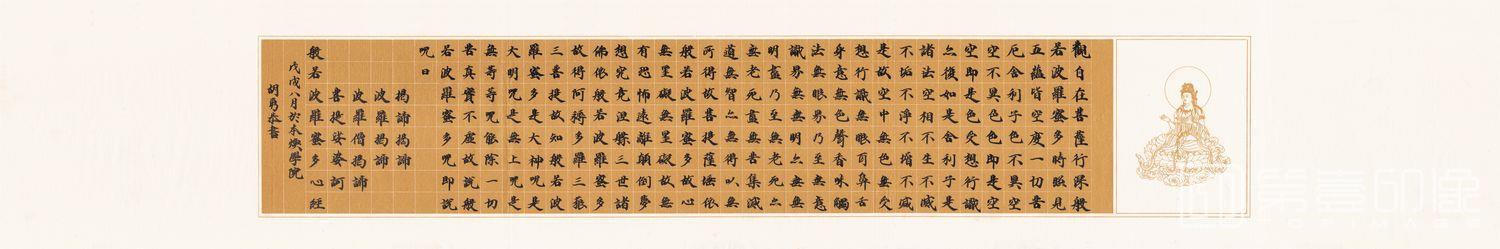 觀自在菩薩行深般
若波羅蜜多時照見
五蘊皆空度一切苦
厄舍利子色不異空
空不異色色即是空
空即是色受想行識
亦復如是舍利子是
諸法空相不生不滅
不垢不淨不增不減
是故空中無色無受
想行識無眼耳鼻舌
身意無色聲香味觸
法無眼界乃至無意
識界無無明亦無無
明盡乃至無老死亦
無老死盡無苦集滅
道無智亦無得以無
所得故菩提薩埵依
般若波羅蜜多故心
無罣礙無罣礙故無
有恐怖遠離顛倒夢
想究竟涅槃三世諸
佛依般若波羅蜜多
故得阿耨多羅三藐
三菩提故知般若波
羅蜜多是大神呪是
大明呪是無上呪是
無等等呪能除一切
苦真實不虛故說般
若波羅蜜多呪即說
呪曰
揭諦揭諦
波羅揭諦
波羅僧揭諦
菩提娑婆訶
般若波羅蜜多心經
戊戌八月於本煥學院
胡恭書
第壹印像
TOPIMAGE